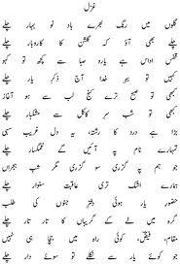 غزل
گلوں میں رنگ بھرے باد نو بہار چلے
چلے بھی آؤ کہ گلشن کا کاروبار چلے
قفس اداس ہے یارو صبا سے کچھ تو کہو
کہیں تو بہر خدا آج ذکر یار چلے
کبھی تو صبح ترے کنج لب سے ہو آغاز
کبھی تو شب سر کاکل سے مشکبار چلے
بڑا ہے درد کا رشتہ، یہ دل غریب سہی
تمہارے نام پہ آئیں گے غمگسار چلے
جو ہم پہ گزری سو گزری مگر شب ہجراں
ہمارے اشک تری عاقبت سنوار چلے
حضور یار ہوئی دفتر جنوں کی طلب
گرہ میں لے کے گریباں کا تار تار چلے
مقام، فیض، کوئی راہ میں جچا ہی نہیں
جو کوئے یار سے نکلے تو سوئے دار چلے